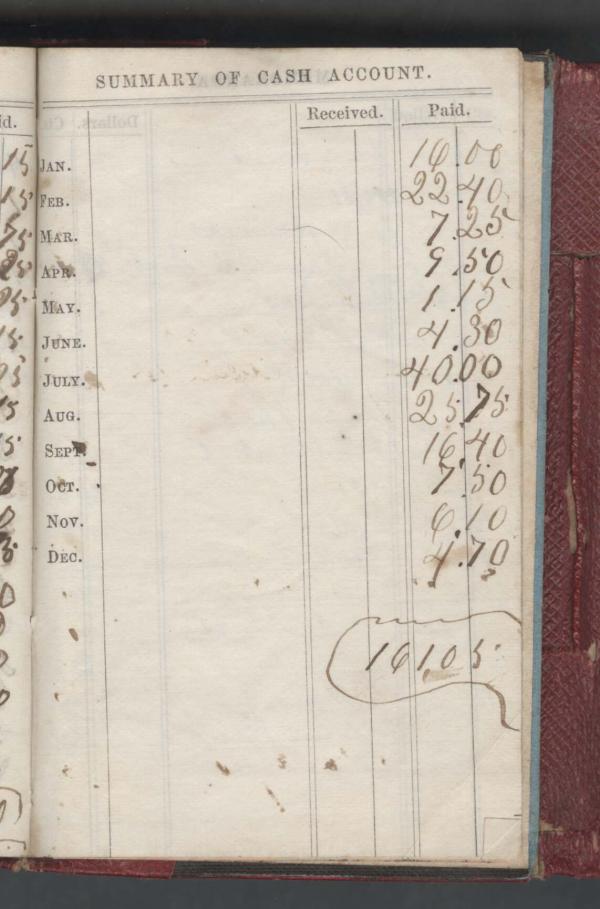 SUMMARY OF CASH ACCOUNT.
Received. Paid.
JAN. 16.00
FEB. 22.40
MAR. 7.25
APR. 9.50
MAY. 1.15
JUNE. 4.30
JULY. 40.00
AUG. 25.75
SEPT. 16.40
OCT. 7.50
NOV. 6.10
DEC. 4.70
161.05